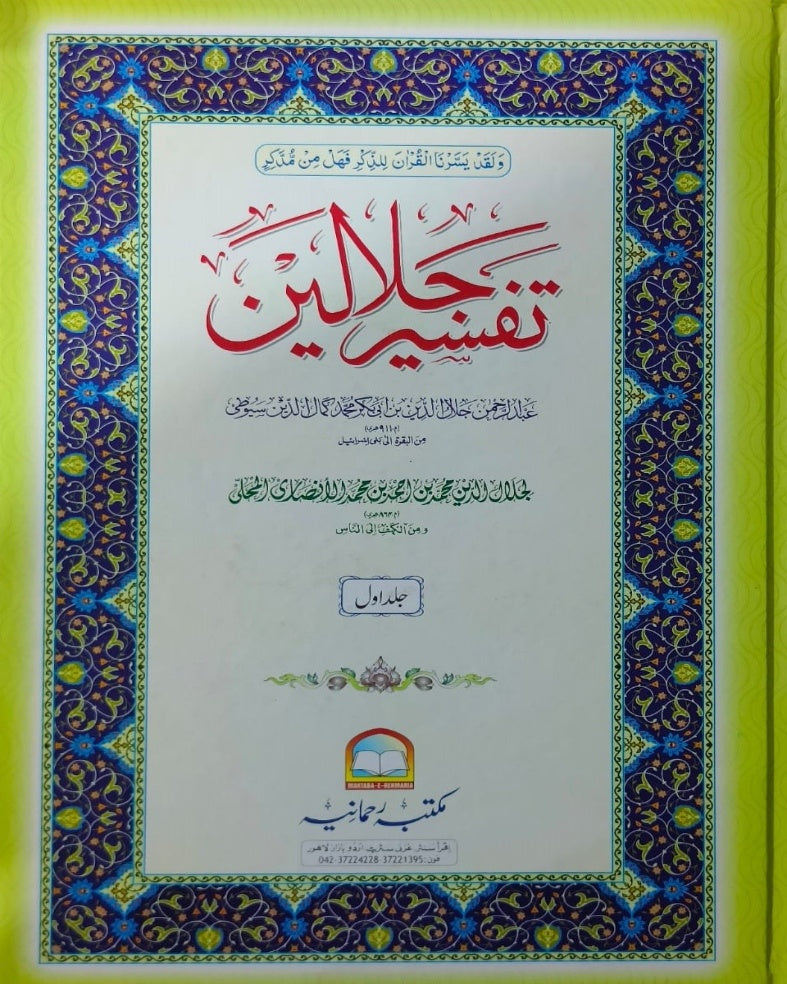 وَلَقَدْ يَسَّرْنَا الْقُرْاٰنَ لِلذِّكْرِ فَهَلْ مِنْ مُّدَّكِرٍ
تفسیر جلالین
عبدالرحمٰن جلال الدین بن ابی بکر محمد کمال الدین سیوطی
(م ۹۱۱ ھجری)
مِنَ البقرۃ الیٰ بنی اسرائیل
لجلال الدین محمد بن احمد بن محمد الأنصاری المحلی
(م ۸۶۴ ھجری)
ومِنَ الکہف الی الناس
جلد اول
MAKTABA-E-REHMANIA
مکتبہ رحمانیہ
اقرأ سنٹر غزنی سٹریٹ اردو بازار لاہور
فون: 37221395-37224228-042